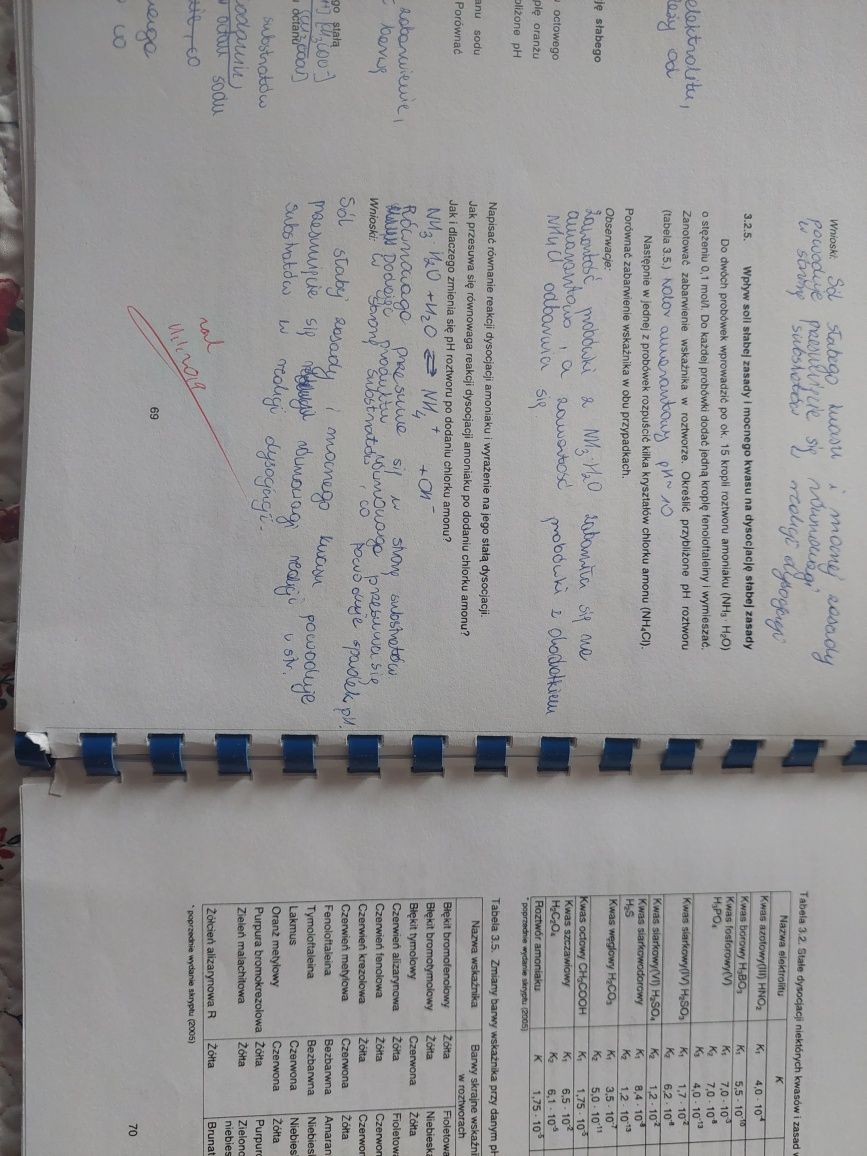 elektrolitu,
ję słabego
octowego
plę oranżu
bliżone pH
anu sodu
Porównać
go stałą
substratów
sodu
Wnioski: Sól słabego kwasu i mocnej zasady
powoduje przesunięcie się równowagi
w stronę substratów w reakcji dysocjacji
3.2.5. Wpływ soli słabej zasady i mocnego kwasu na dysocjację słabej zasady
Do dwóch probówek wprowadzić po ok. 15 kropli roztworu amoniaku (NH₃· H₂O)
o stężeniu 0,1 mol/l. Do każdej probówki dodać jedną kroplę fenoloftaleiny i wymieszać.
Zanotować zabarwienie wskaźnika w roztworze. Określić przybliżone pH roztworu
(tabela 3.5.) kolor amarantowy pH ~ 10
Następnie w jednej z probówek rozpuścić kilka kryształów chlorku amonu (NH₄Cl).
Porównać zabarwienie wskaźnika w obu przypadkach.
Obserwacje:
Zawartość probówki z NH₃·H₂O zabarwiła się na
amarantowo, a zawartość probówki z dodatkiem
NH₄Cl odbarwia się
Napisać równanie reakcji dysocjacji amoniaku i wyrażenie na jego stałą dysocjacji.
Jak przesuwa się równowaga reakcji dysocjacji amoniaku po dodaniu chlorku amonu?
Jak i dlaczego zmienia się pH roztworu po dodaniu chlorku amonu?
NH₃·H₂O + H₂O ⇌ NH₄⁺ + OH⁻
Równowaga przesuwa się w stronę substratów
Dodając produktu równowaga przesuwa się
Wnioski: w stronę substratów, co powoduje spadek pH.
Sól słabej zasady i mocnego kwasu powoduje
przesunięcie się równowagi reakcji w str.
substratów w reakcji dysocjacji.
69
Tabela 3.2. Stałe dysocjacji niektórych kwasów i zasad w
Nazwa elektrolitu K
Kwas azotowy(III) HNO₂ K₁ 4,0 · 10⁻⁴
Kwas borowy H₃BO₃ K₁ 5,5 · 10⁻¹⁰
Kwas fosforowy(V) K₁ 7,0 · 10⁻³
H₃PO₄ K₂ 7,0 · 10⁻⁸
K₃ 4,0 · 10⁻¹³
Kwas siarkowy(IV) H₂SO₃ K₁ 1,7 · 10⁻²
K₂ 6,2 · 10⁻⁸
Kwas siarkowy(VI) H₂SO₄ K₂ 1,2 · 10⁻²
Kwas siarkowodorowy K₁ 8,4 · 10⁻⁸
H₂S K₂ 1,2 · 10⁻¹³
Kwas węglowy H₂CO₃ K₁ 3,5 · 10⁻⁷
K₂ 5,0 · 10⁻¹¹
Kwas octowy CH₃COOH K₁ 1,75 · 10⁻⁵
Kwas szczawiowy K₁ 6,5 · 10⁻²
H₂C₂O₄ K₂ 6,1 · 10⁻⁵
Roztwór amoniaku K 1,75 · 10⁻⁵
* poprzednie wydanie skryptu (2005)
Tabela 3.5. Zmiany barwy wskaźnika przy danym pH
Nazwa wskaźnika Barwy skrajne wskaźni
w roztworach
Błękit bromofenolowy Żółta Fioletowa
Błękit bromotymolowy Żółta Niebieska
Błękit tymolowy Czerwona Żółta
Czerwień alizarynowa Żółta Fioletowa
Czerwień fenolowa Żółta Czerwon
Czerwień krezolowa Żółta Czerwon
Czerwień metylowa Czerwona Żółta
Fenoloftaleina Bezbarwna Amaran
Tymoloftaleina Bezbarwna Niebies
Lakmus Czerwona Niebies
Oranż metylowy Czerwona Żółta
Purpura bromokrezolowa Żółta Purpur
Zieleń malachitowa Żółta Zielono
niebies
Żółcień alizarynowa R Żółta Brunat
* poprzednie wydanie skryptu (2005)
70